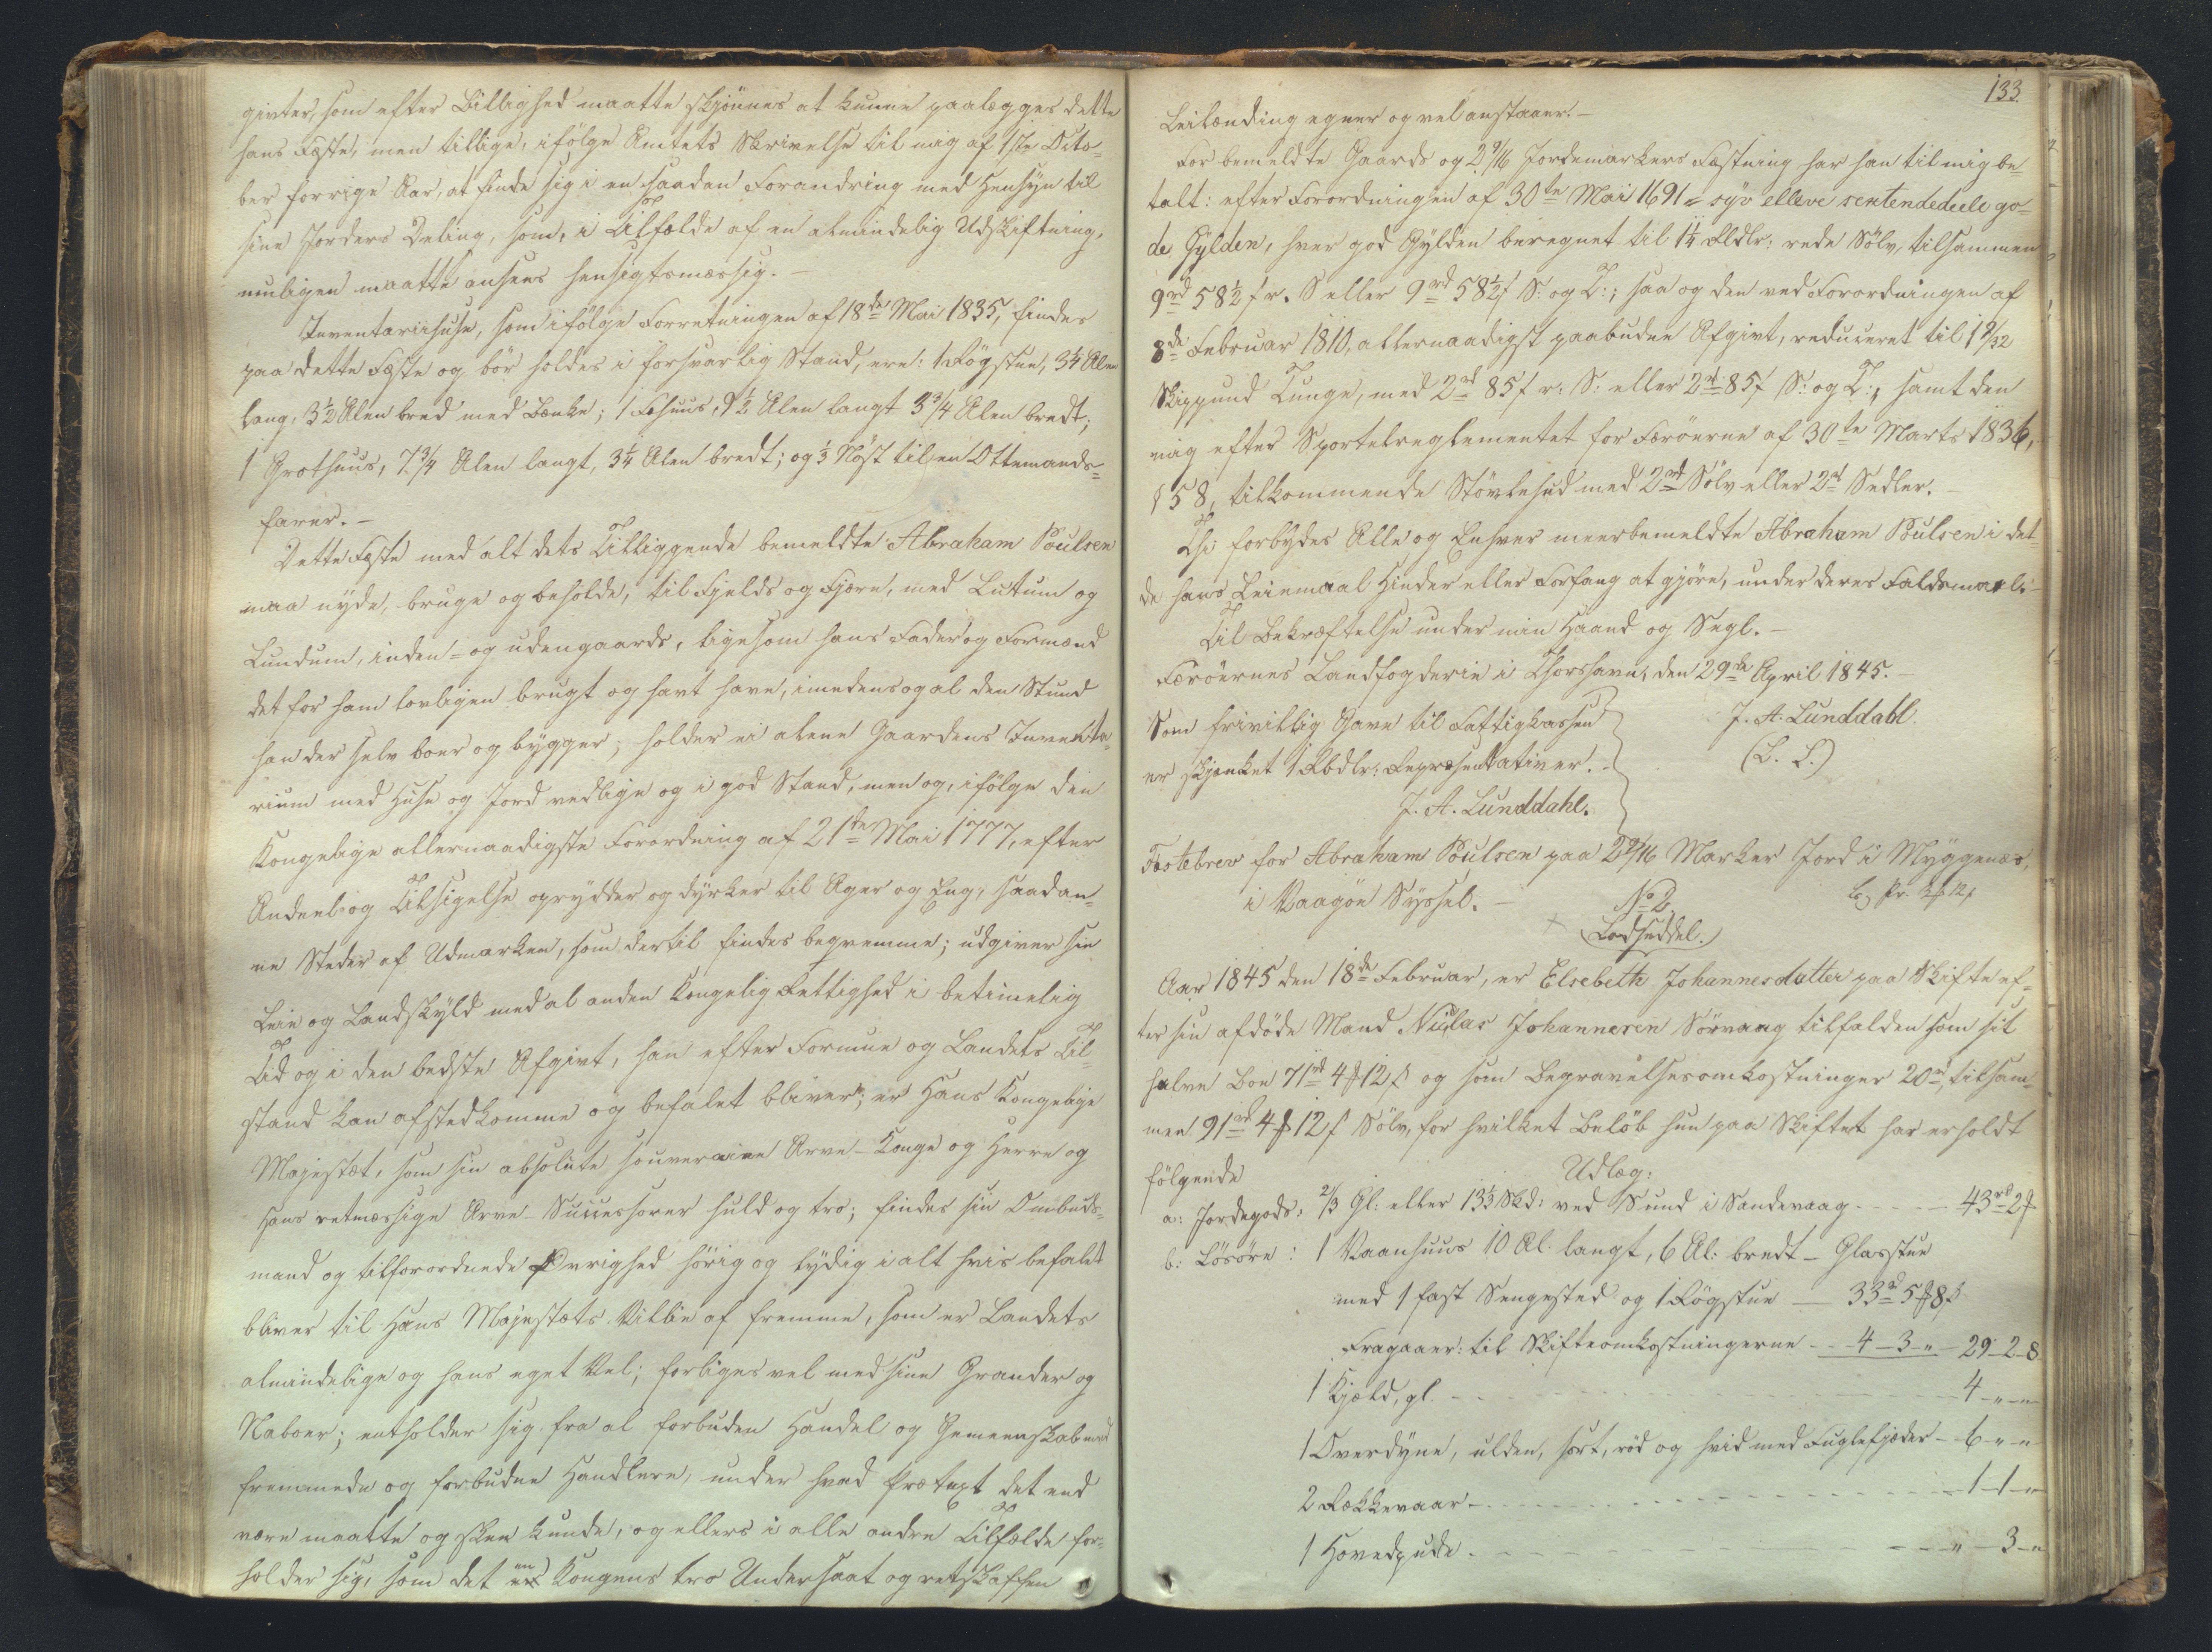 givter, som efter Billighed maatte skjönnes at kunne paalægges dette
hans Fæste, men tillige, ifölge Amtets Skrivelse til mig af 1ste Octo-
ber forrige Aar, at finde sig i en saadan Forandring med Hensyn til
sine Jorders Deling, som, i Tilfælde af en almindelig Udskiftning,
muligen maatte ansees hensigtsmæssig. –
Inventariihuse, som ifölge Forretningen af 18de Mai 1835, findes
paa dette Fæste og bör holdes i forsvarlig Stand, ere: 1 Rögstue, 3¼ Alen
lang, 3½ Alen bred med Bænke; 1 Fæhuus, 9½ Alen langt 3¾ Alen bredt;
1 Grothuus, 7¾ Alen langt, 3¼ Alen bredt; og ⅓ Nöst til en Ottemands-
farer. –
Dette Fæste med alt dets Tilliggende bemeldte Abraham Poulsen
maa nyde, bruge og beholde, til Fjelds og Fjære, med Luttum og
Lundum, inden- og udengaards, ligesom hans Fader og Formænd
det for ham lovligen brugt og havt have, imedens og al den Stund
han der selv boer og bygger; holder ei alene Gaardens Inventa-
rium med Huse og Jord vedlige og i god Stand, men og, ifölge den
Kongelige allernaadigste Forordning af 21de Mai 1777, efter
Andeel og Tilsigelse oprydder og dyrker til Ager og Eng, saadan-
ne Steder af Udmarken, som dertil findes beqvemme; udgiver sin
Leie og Landskyld med al anden Kongelig Rettighed i betimelig
Tid og i den bedste Afgivt, han efter Formue og Landets Til-
stand kan afstedkomme og befalet bliver; er Hans Kongelige
Majestæt, som sin absolute souveraine Arve-Konge og Herre og
Hans retmæssige Arve-Successorer huld og tro; findes sin Ombuds-
mand og tilforordnede Øvrighed hörig og lydig i alt hvis befalet
bliver til Hans Majestæts Villie at fremme, som er Landets
almindelige og hans eget Vel; forliges vel med sine Grander og
Naboer; entholder sig fra al forbuden Handel og Gemeenskab med
fremmede og forbudne Handlere, under hvad Prætext det end
være maatte og skee kunde, og ellers i alle andre Tilfælde for-
holder sig, som det en Kongens tro Undersaat og retskaffen
133.
Leilænding egner og vel anstaaer. –
For bemeldte Gaards og 2 9/16 Jordemarkers Fæstning har han til mig be-
talt: efter Forordningen af 30te Mai 1691 = syv elleve sextendedeele go-
de Gylden, hver god Gylden beregnet til 1¼ Rbdlr. rede Sölv, tilsammen
9rd 58½ s r. S eller 9rd 58½ s S. og T.; saa og den ved Forordningen af
8de Februar 1810, allernaadigst paabudne Afgivt, reduceret til 1 9/32
Skippund Tunge, med 2rd 85 s r. S. eller 2rd 85 s S. og T., samt den
mig efter Sportelreglementet for Færöerne af 30te Marts 1836,
§ 58, tilkommende Stövlehud med 2rd Sölv eller 2rd Sedler. –
Thi forbydes Alle og Enhver meerbemeldte Abraham Poulsen i det-
de hans Leiemaal Hinder eller Forfang at gjöre, under deres Faldsmaal. –
Til Bekræftelse under min Haand og Segl. –
Færöernes Landfogderie i Thorshavn, den 29de April 1845. –
J. A. Lunddahl.
(L. S.)
Som frivillig Gave til Fattigkassen
er skjenket 1 Rbdlr. Repræsentativer. –
J. A. Lunddahl.
Fæstebrev for Abraham Poulsen paa 2 9/16 Marker Jord i Myggenæs,
i Vaagöe Syssel. –
No 2.
Lodseddel.
Aar 1845 den 18de Februar, er Elsebeth Johannesdatter paa Skifte ef-
ter sin afdöde Mand Niclas Johannesen Sörvaag tilfalden som sit
halve Boe 71rd 4 ℳ 12 s og som Begravelsesomkostninger 20rd, tilsam-
men 91rd 4 ℳ 12 s Sölv, for hvilket Belöb hun paa Skiftet har erholdt
fölgende
Udlæg:
a: Jordegods: 2/3 Gl. eller 13⅓ Skd. ved Sund i Sandevaag - - - - 43rd 2 ℳ
b: Lösöre: 1 Vaanhuus 10 Al. langt, 6 Al. bredt – Glasstue
med 1 fast Sengested og 1 Rögstue — 33rd 5 ℳ 8 s
Fragaaer: til Skifteomkostningerne - - 4 – 3 – „ – 29 – 2 – 8
1 Kjeld, gl. - - - 4 – „ – „
1 Overdyne, ulden, sort, röd og hvid med Fuglefjeder – 6 – „ – „
2 Rækkevaar - - - 1 – 1 – „
1 Hovedpude - - - „ – 3 – „